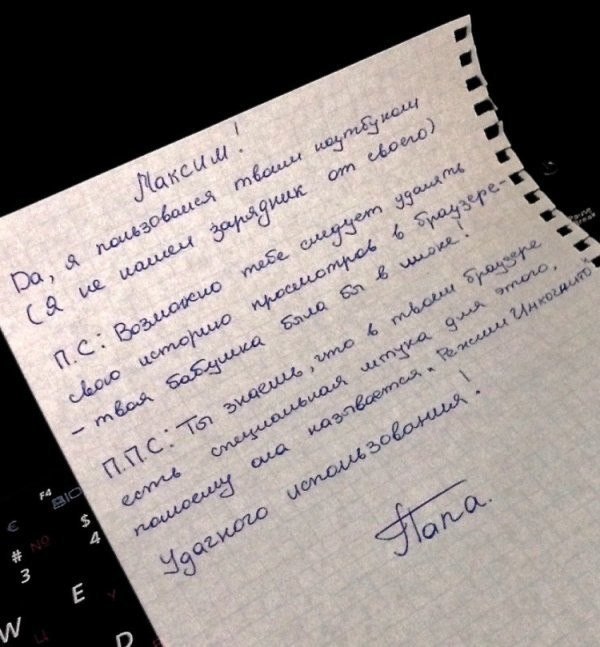 Максим!
Да, я пользовался твоим ноутбуком
(Я не нашел зарядник от своего)
П.С: Возможно тебе следует удалять
свою историю просмотров в браузере-
- твоя бабушка была бы в шоке!
П.П.С: Ты знаешь, что в твоем браузере
есть специальная штука для этого,
помоему она называется "Режим Инкогнито"
Удачного использования!
Папа.
F4
€
$
#
4
3
W
E
D